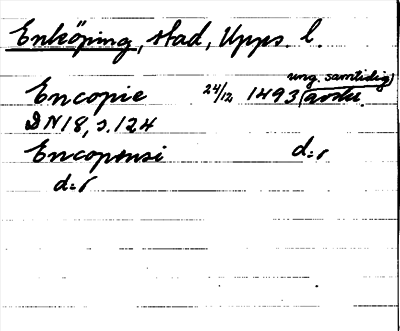 Enköping, stad, Upps. l.
ung. samtidig)
Encopie 24/12 1493 (avskr.
DN 18, s. 124
Encopensi d:r
d:r